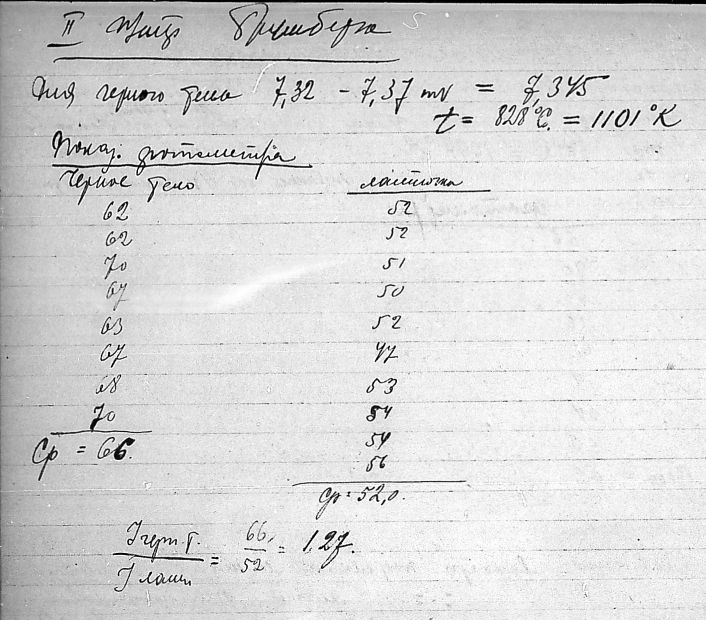 II
Для черного тела 7,32 - 7,37 mv = 7,345
t = 828°C. = 1101°K
Показ. фотометра
Черное тело ласточка
62 52
62 52
70 51
67 50
63 52
67 47
68 53
70 54
Ср = 66. 54
56
Ср = 52,0.
Jчерн.т. / Jласт. = 66 / 52 = 1,27.